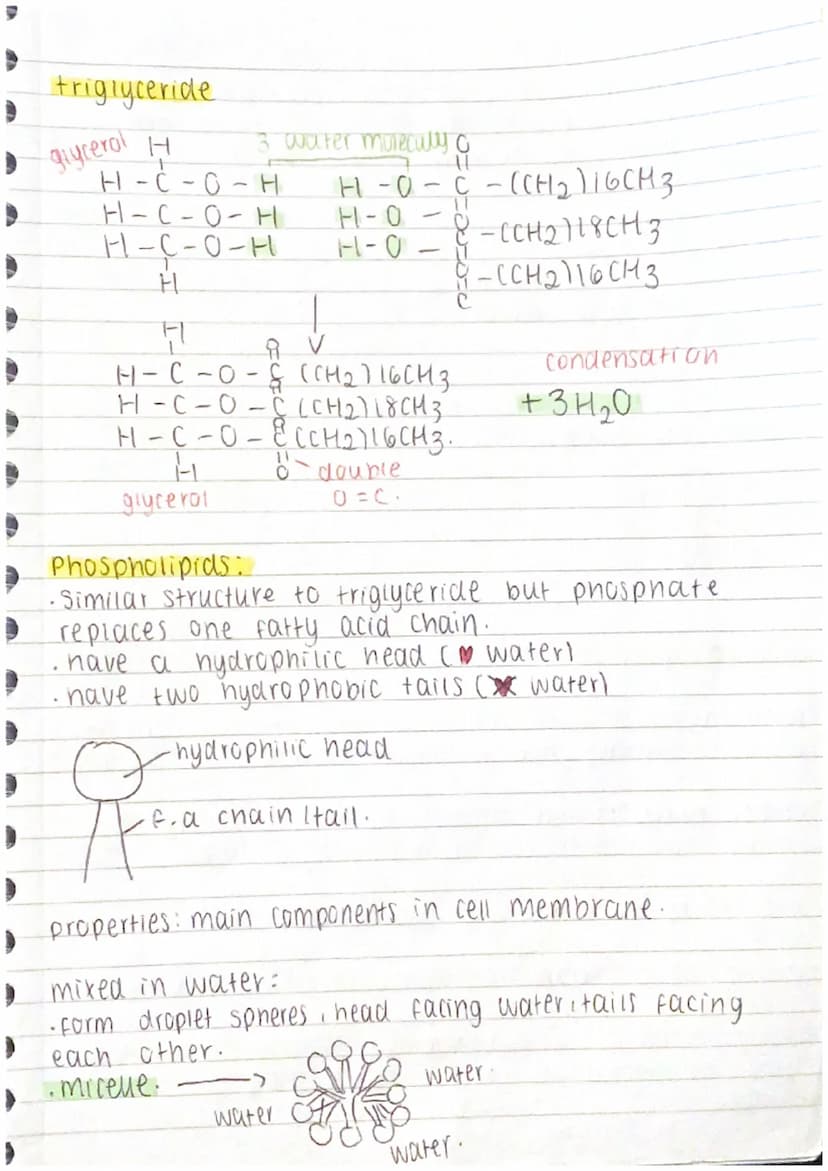 triglyceride
glycerol H 3 water molecules O
H - C - O - H H - O - C - (CH2)16CH3
H - C - O - H H - O - C - (CH2)18CH3
H - C - O - H H - O - C - (CH2)16CH3
H
H
H - C - O - C (CH2)16CH3 condensation
H - C - O - C (CH2)18CH3 +3H2O
H - C - O - C (CH2)16CH3.
H O double
glycerol O = C.
Phospholipids:
· Similar structure to triglyceride but phosphate
replaces one fatty acid chain.
. have a hydrophilic head (♥ water)
. have two hydrophobic tails ( water)
hydrophilic head
f.a chain / tail.
properties: main components in cell membrane.
mixed in water:
· form droplet spheres, head facing water, tails facing
each other.
. micelle. → water.
water
water.